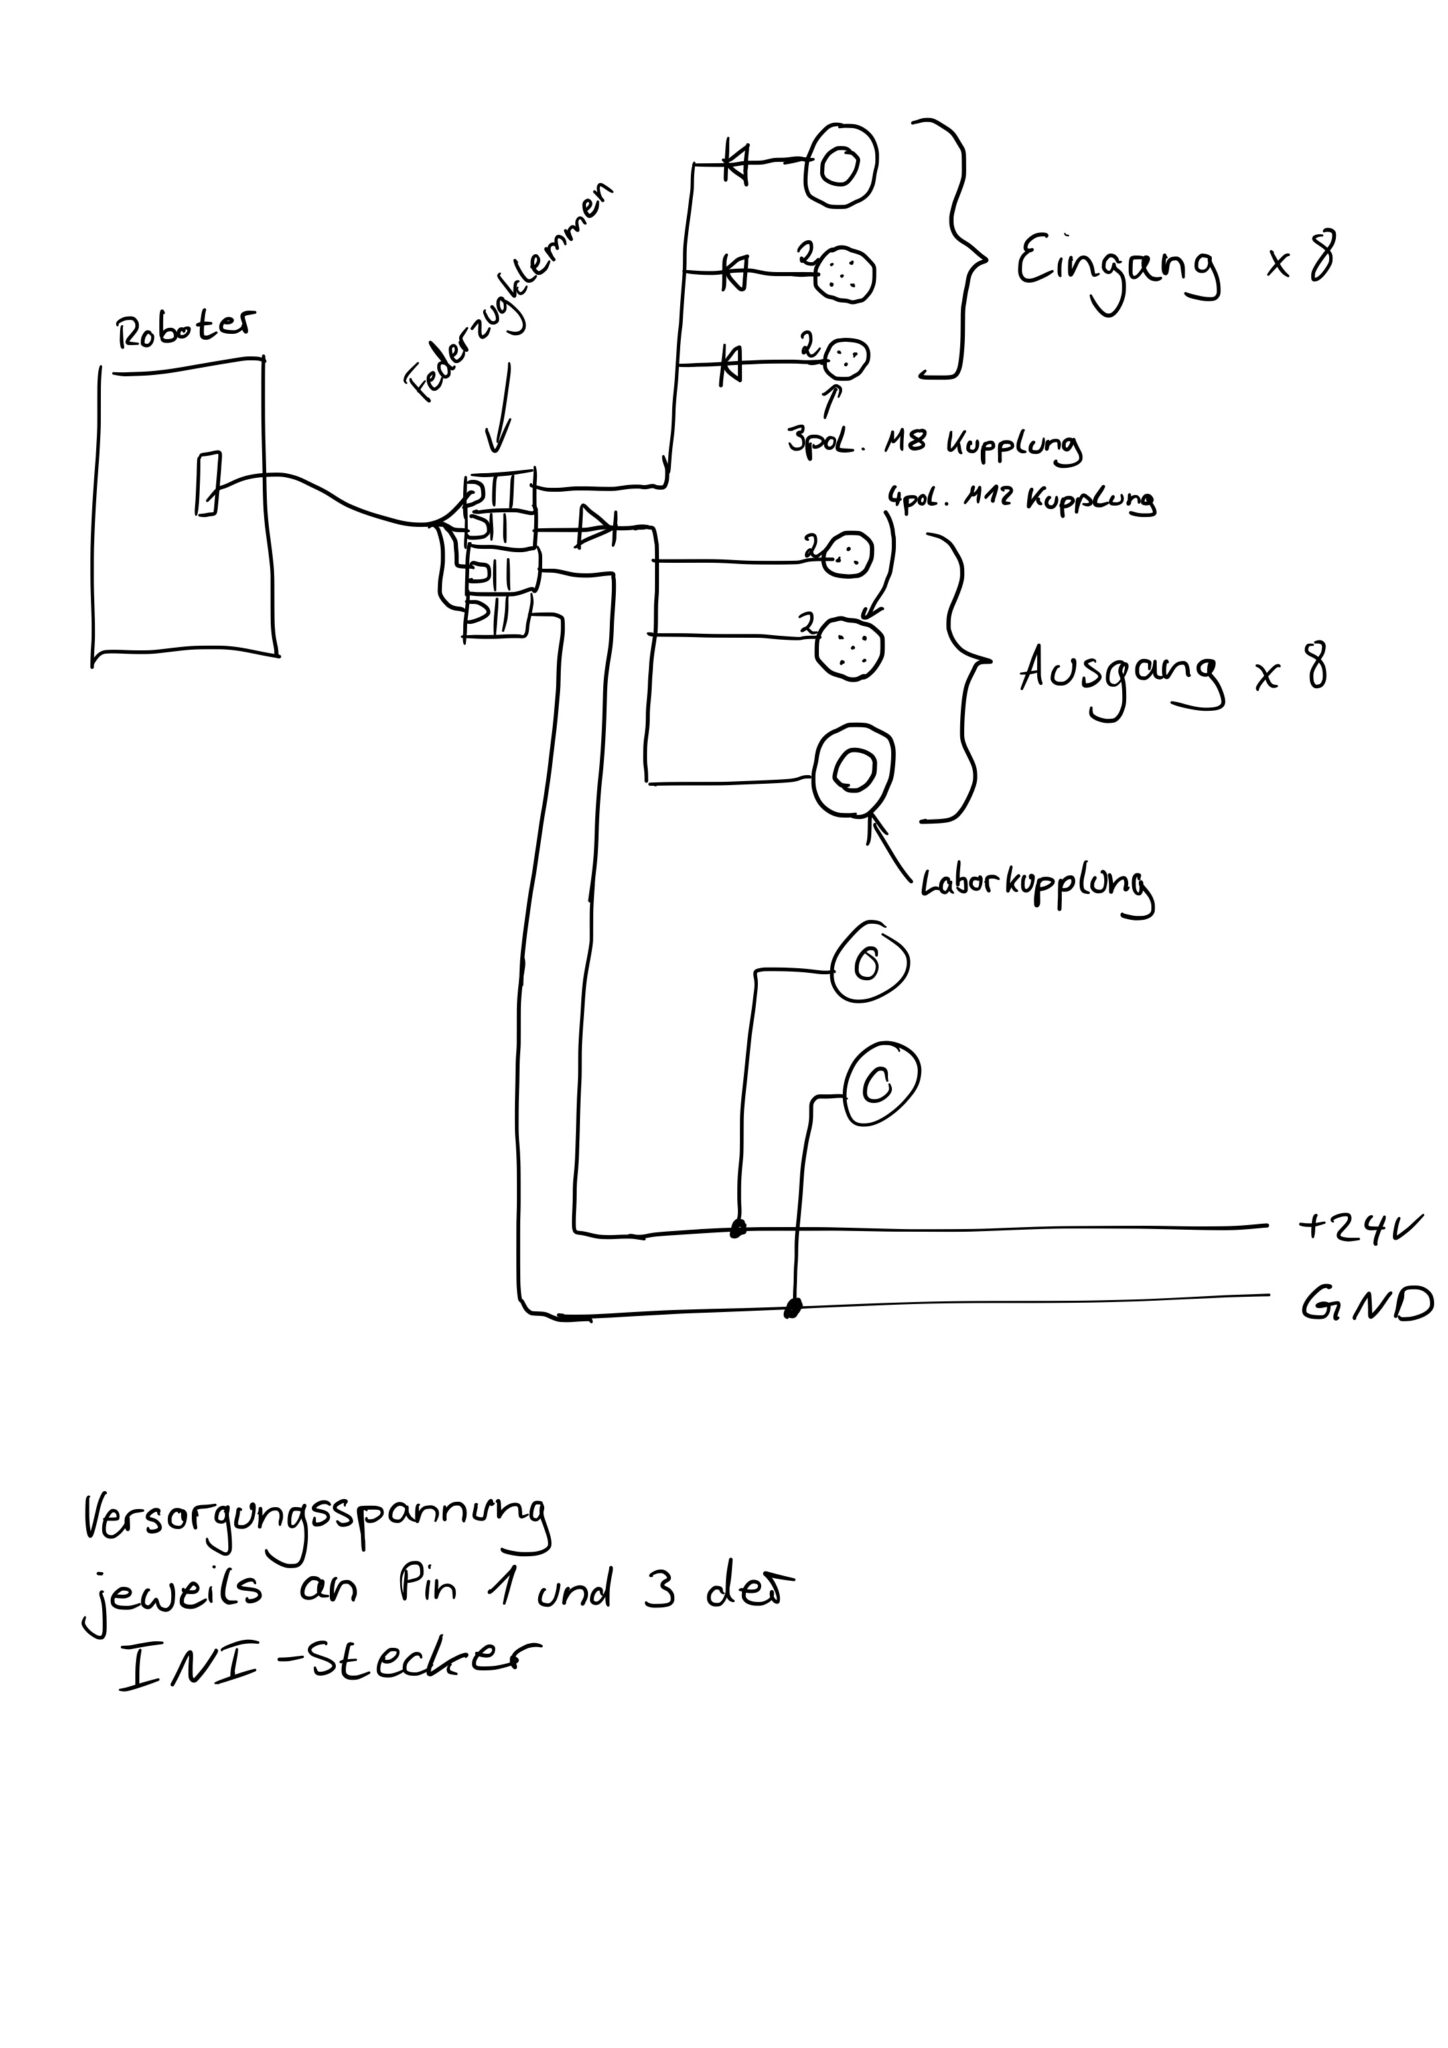 Federzugklemmen
Eingang x 8
Roboter
2
2
3pol. M8 Kupplung
4pol. M12 Kupplung
2
2
Ausgang x 8
Laborkupplung
+24V
GND
Versorgungsspannung
jeweils an Pin 1 und 3 der
INI-Stecker